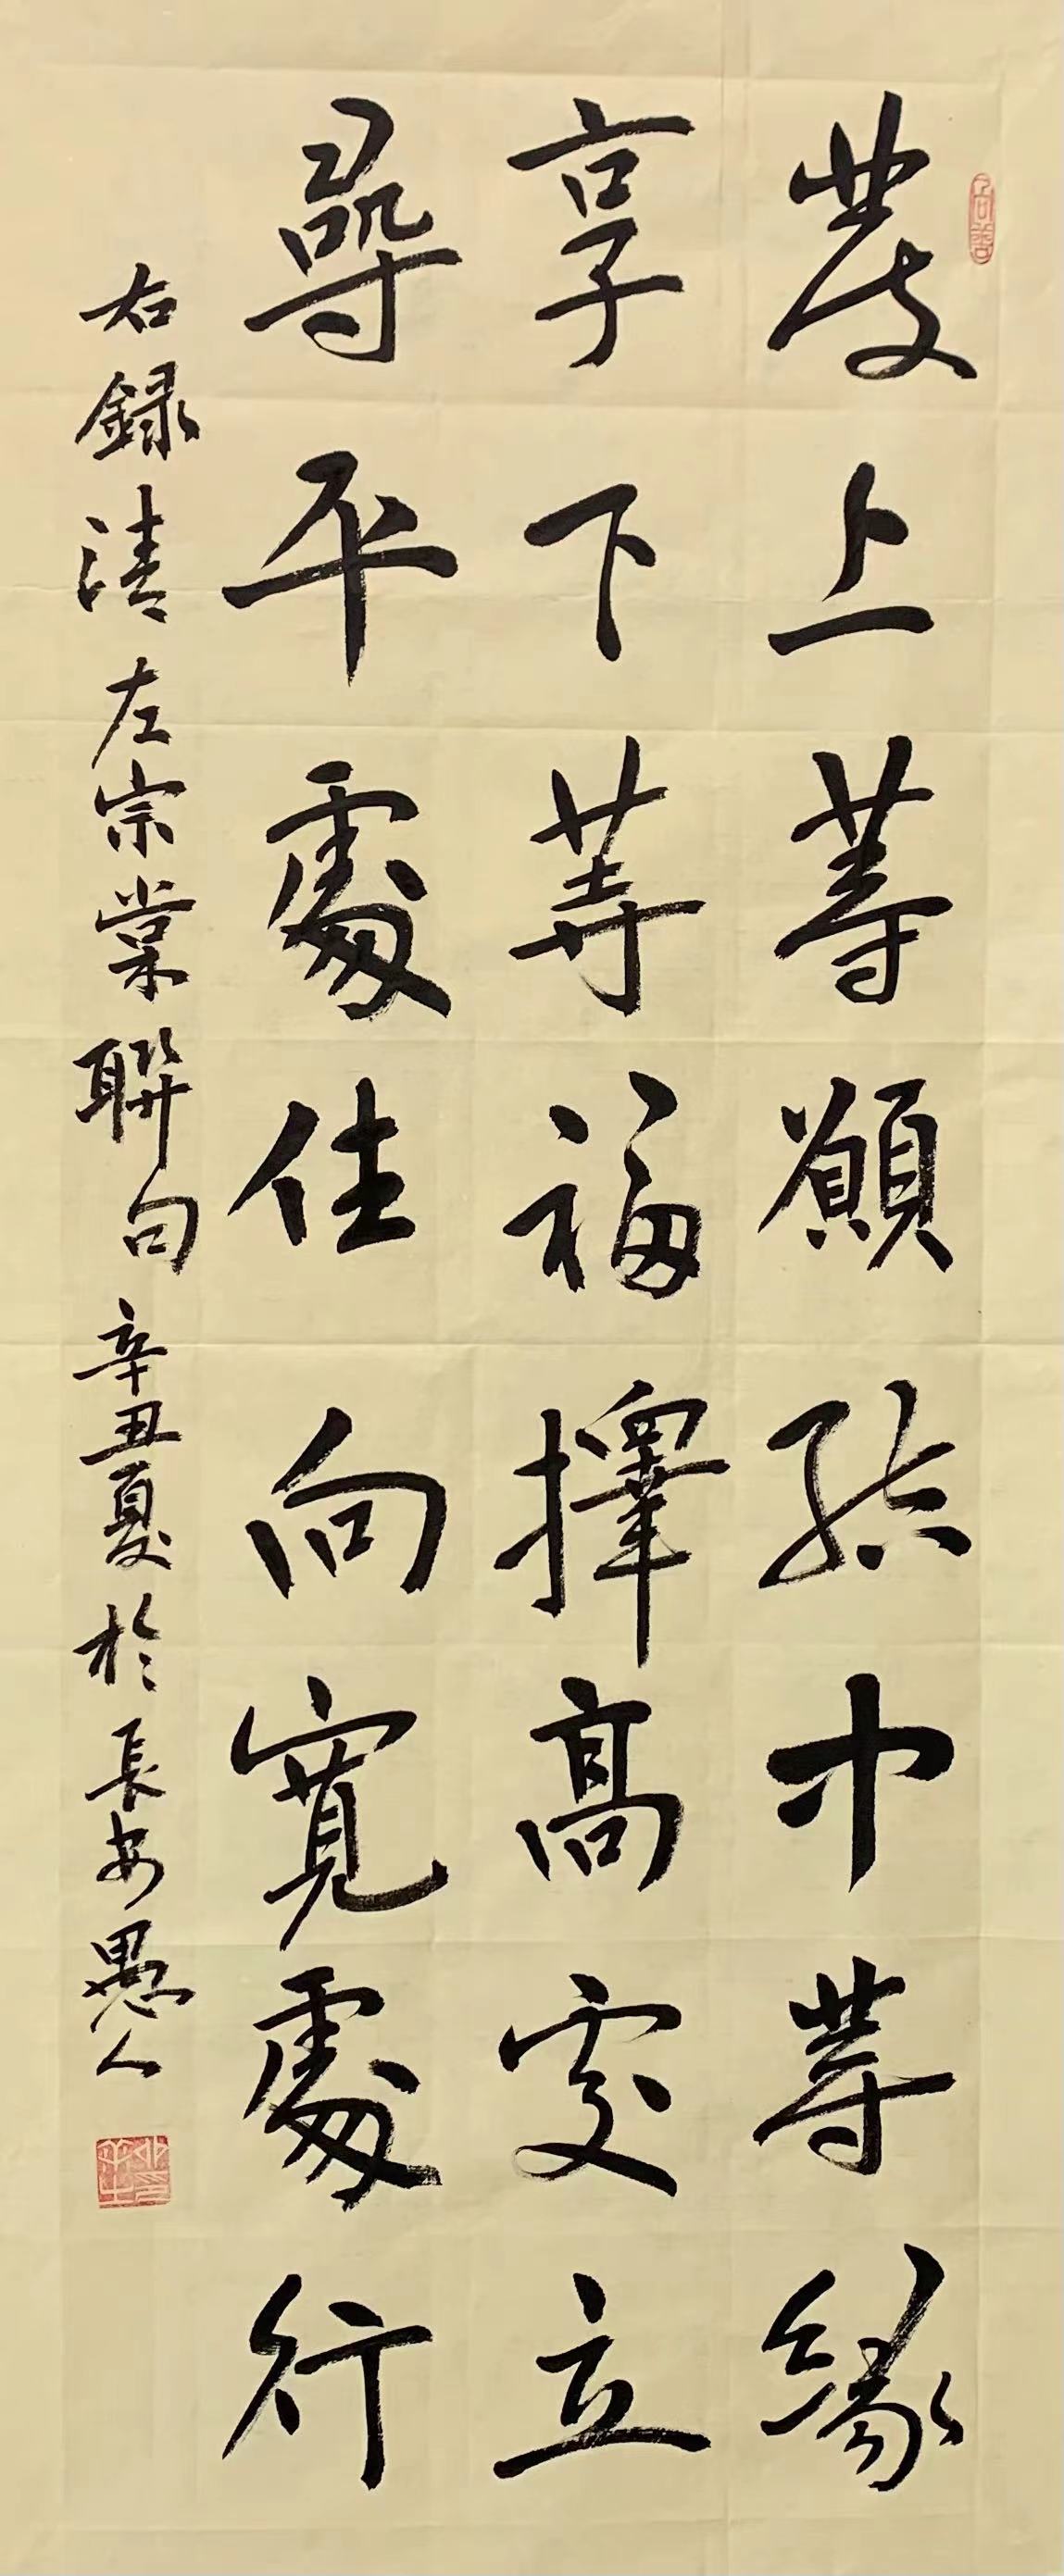 發上等願結中等緣
享下等福擇高處立
尋平處住向寬處行
右録清左宗棠聯句辛丑夏於長安愚人